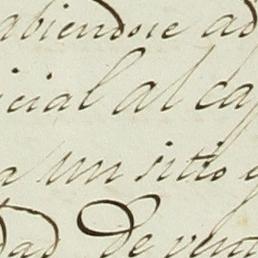 abiendose ad
icial al ca
a un sitio
dad De venti